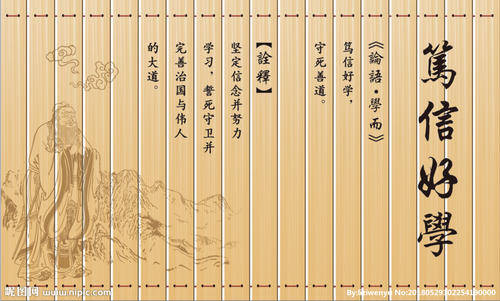 篤信好學
《論語·學而》
篤信好学，
守死善道。
【詮釋】
坚定信念并努力
学习，誓死守卫并
完善治国与伟人
的大道。
昵图网 www.nipic.com
By:leiwenye No:20180529302254190000